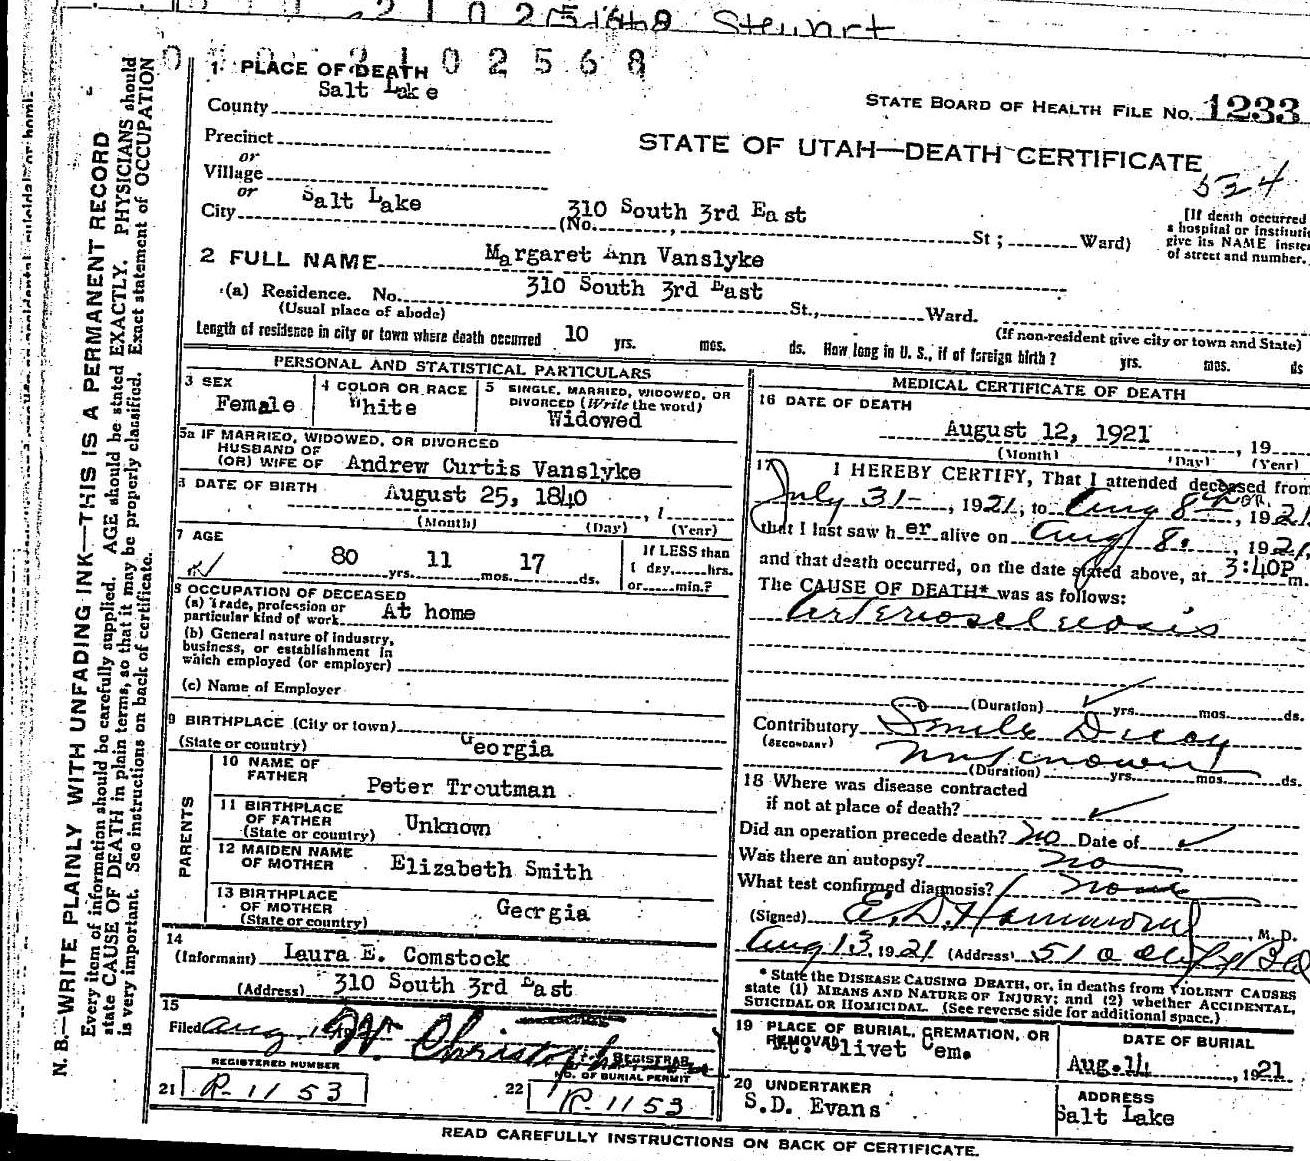 Stewart
0 2 1 0 2 5 6 8
1 PLACE OF DEATH
Salt Lake
County
STATE BOARD OF HEALTH FILE No. 1233
Precinct
or
STATE OF UTAH—DEATH CERTIFICATE
Village
or
534
City Salt Lake (No. 310 South 3rd East St; Ward)
[If death occurred
a hospital or instituti
give its NAME inste
of street and number.
2 FULL NAME Margaret Ann Vanslyke
(a) Residence. No. 310 South 3rd East St., Ward.
(Usual place of abode) (If non-resident give city or town and State)
Length of residence in city or town where death occurred 10 yrs. mos. ds. How long in U. S., if of foreign birth? yrs. mos. ds
PERSONAL AND STATISTICAL PARTICULARS
3 SEX
Female
4 COLOR OR RACE
White
5 SINGLE, MARRIED, WIDOWED, OR
DIVORCED (Write the word)
Widowed
5a IF MARRIED, WIDOWED, OR DIVORCED
HUSBAND OF
(OR) WIFE OF Andrew Curtis Vanslyke
DATE OF BIRTH August 25, 1840, 1
(Month) (Day) (Year)
7 AGE
80 yrs. 11 mos. 17 ds.
If LESS than
1 day,......hrs.
or......min.?
8 OCCUPATION OF DECEASED
(a) Trade, profession or
particular kind of work At home
(b) General nature of industry,
business, or establishment in
which employed (or employer)
(c) Name of Employer
9 BIRTHPLACE (City or town)
(State or country) Georgia
PARENTS
10 NAME OF
FATHER Peter Troutman
11 BIRTHPLACE
OF FATHER
(State or country) Unknown
12 MAIDEN NAME
OF MOTHER Elizabeth Smith
13 BIRTHPLACE
OF MOTHER
(State or country) Georgia
14
(Informant) Laura E. Comstock
(Address) 310 South 3rd East
15
Filed Aug.
REGISTRAR
REGISTERED NUMBER
21 R-1153
NO. OF BURIAL PERMIT
22 R-1153
MEDICAL CERTIFICATE OF DEATH
16 DATE OF DEATH
August 12, 1921, 19
(Month) (Day) (Year)
17 I HEREBY CERTIFY, That I attended deceased from
July 31, 1921, to Aug 8th, 1921
that I last saw her alive on Aug 8., 1921,
and that death occurred, on the date stated above, at 3:40P m.
The CAUSE OF DEATH* was as follows:
Arteriosclerosis
(Duration) yrs. mos. ds.
Contributory Senile Decay
(SECONDARY) unknown
(Duration) yrs. mos. ds.
18 Where was disease contracted
if not at place of death?
Did an operation precede death? no Date of
Was there an autopsy? no
What test confirmed diagnosis? none
(Signed) E. D. Hammond, M. D.
Aug 13 1921 (Address) 510
* State the DISEASE CAUSING DEATH, or, in deaths from VIOLENT CAUSES
state (1) MEANS AND NATURE OF INJURY; and (2) whether ACCIDENTAL,
SUICIDAL OR HOMICIDAL. (See reverse side for additional space.)
19 PLACE OF BURIAL, CREMATION, OR
REMOVAL
Mt. Olivet Cem.
DATE OF BURIAL
Aug. 14, 1921
20 UNDERTAKER
S.D. Evans
ADDRESS
Salt Lake
READ CAREFULLY INSTRUCTIONS ON BACK OF CERTIFICATE.
N. B.—WRITE PLAINLY WITH UNFADING INK—THIS IS A PERMANENT RECORD
Every item of information should be carefully supplied. AGE should be stated EXACTLY. PHYSICIANS should
state CAUSE OF DEATH in plain terms, so that it may be properly classified. Exact statement of OCCUPATION
is very important. See instructions on back of certificate.